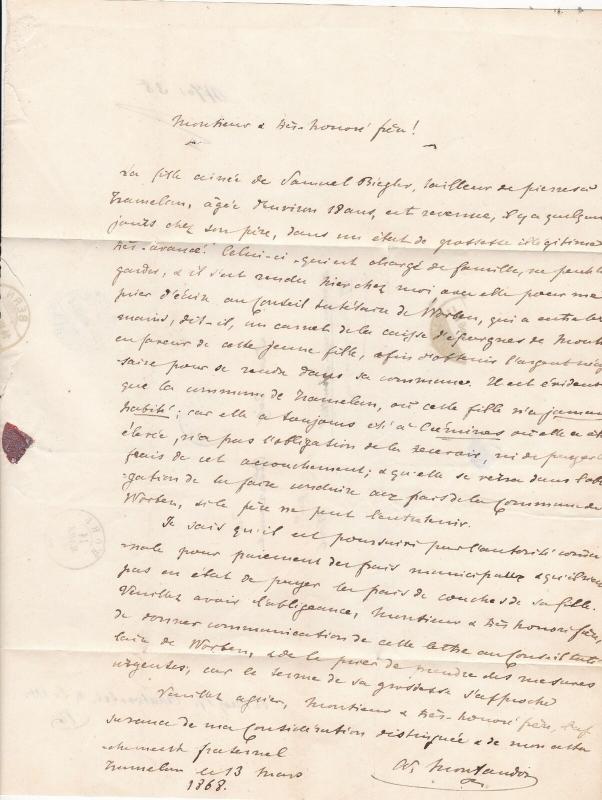 Monsieur & très-honoré frère!
La fille aînée de Samuel Biegler, tailleur de pierres à
Tramelan, âgée d'environ 18 ans, est revenue, il y a quelques
jours chez son père, dans un état de grossesse illégitime
très-avancé. Celui-ci qui est chargé de famille, ne peut la
garder, & il s'est rendu hier chez moi avec elle pour me
prier d'écrire au Conseil tutélaire de Worben, qui a entre les
mains, dit-il, un carnet de la caisse d'épargnes de
en faveur de cette jeune fille, afin d'obtenir l'argent néces-
saire pour se rendre dans sa commune. Il est évident
que la commune de Tramelan, où cette fille n'a jamais
habité; car elle a toujours été à Corémines où elle a été
élevée, n'a pas l'obligation de la recevoir, ni de payer les
frais de cet accouchement; & qu'elle se verra dans l'obli-
gation de la faire conduire aux frais de la Commune de
Worben, si le père ne peut l'entretenir.
Je sais qu'il est poursuivi par l'autorité commu-
nale pour paiement des frais municipaux & qu'il n'est
pas en état de payer les frais de couches de sa fille.
Veuillez avoir l'obligeance, Monsieur & très-honoré frère,
de donner communication de cette lettre au Conseil tuté-
laire de Worben, & de le prier de prendre des mesures
urgentes, car le terme de sa grossesse s'approche
Veuillez agréer, Monsieur & très-honoré frère, l'as-
surance de ma Considération distinguée & de mon atta-
chement fraternel
Tramelan le 13 mars
1868.
Montandon
BERN